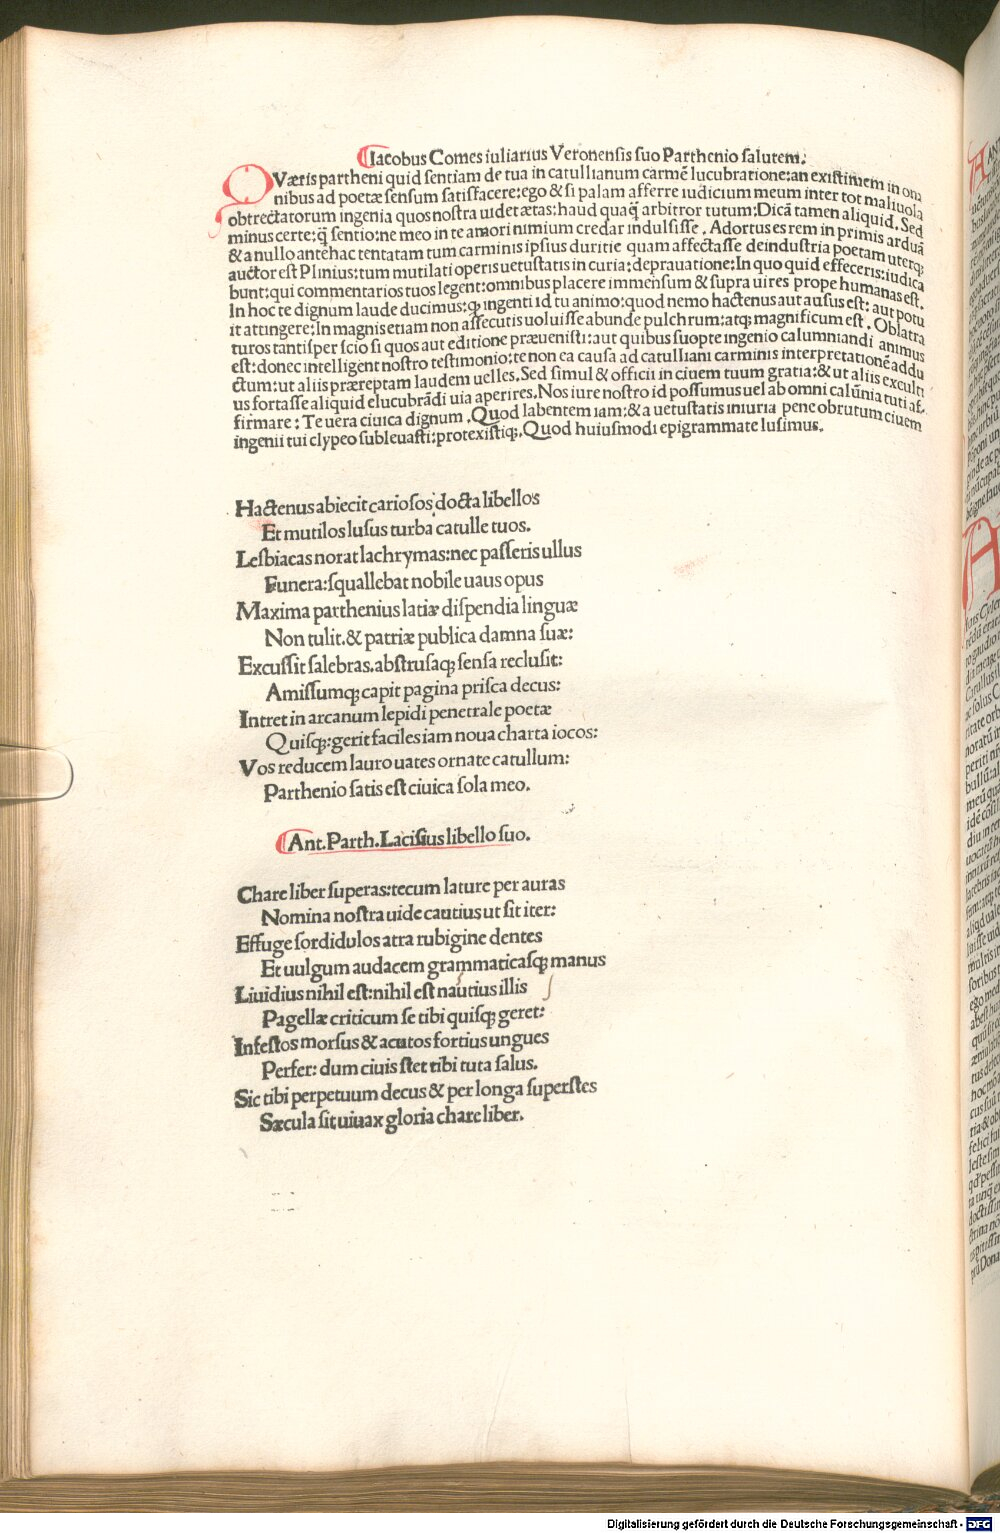 Iacobus Comes iuliarius Veronensis suo Parthenio salutem.
QVæris partheni quid sentiam de tua in catullianum carmē lucubratione: an existimem in om
nibus ad poetæ sensum satisfacere: ego & si palam afferre iudicium meum inter tot maliuola
obtrectatorum ingenia quos nostra uidet ætas: haud quaq̄ arbitror tutum: Dicā tamen aliquid. Sed
minus certe: q̄ sentio: ne meo in te amori nimium credar indulsisse. Adortus es rem in primis arduā
& a nullo antehac tentatam tum carminis ipsius duritie quam affectasse deindustria poetam uterq;
auctor est Plinius: tum mutilati operis uetustatis in curia: deprauatione: In quo quid effeceris: iudica
bunt: qui commentarios tuos legent: omnibus placere immensum & supra uires prope humanas est.
In hoc te dignum laude ducimus: q ingenti id tu animo: quod nemo hactenus aut ausus est: aut potu
it attingere: In magnis etiam non assecutis uoluisse abunde pulchrum: atq; magnificum est. Oblatra
turos tantisper scio si quos aut editione præuenisti: aut quibus suopte ingenio calumniandi animus
est: donec intelligent nostro testimonio: te non ea causa ad catulliani carminis interpretationē addu
ctum: ut aliis præreptam laudem uelles. Sed simul & officii in ciuem tuum gratia: & ut aliis exculti
us fortasse aliquid elucubrādi uia aperires. Nos iure nostro id possumus uel ab omni calūnia tuti af.
firmare: Te uera ciuica dignum. Quod labentem iam: & a uetustatis iniuria pene obrutum ciuem
ingenii tui clypeo subleuasti: protexistiq;. Quod huiusmodi epigrammate lusimus.
Hactenus abiecit cariosos docta libellos
Et mutilos lusus turba catulle tuos.
Lesbiacas norat lachrymas: nec passeris ullus
Funera: squallebat nobile uaus opus
Maxima parthenius latiæ dispendia linguæ
Non tulit. & patriæ publica damna suæ:
Excussit salebras. abstrusaq; sensa reclusit:
Amissumq; capit pagina prisca decus:
Intret in arcanum lepidi penetrale poetæ
Quisq;: gerit faciles iam noua charta iocos:
Vos reducem lauro uates ornate catullum:
Parthenio satis est ciuica sola meo.
Ant. Parth. Lacisius libello suo.
Chare liber superas: tecum lature per auras
Nomina nostra uide cautius ut sit iter:
Effuge sordidulos atra rubigine dentes
Et uulgum audacem grammaticasq; manus
Liuidius nihil est: nihil est nautius illis
Pagellæ criticum se tibi quisq; geret:
Infestos morsus & acutos fortius ungues
Perfer: dum ciuis stet tibi tuta salus.
Sic tibi perpetuum decus & per longa superstes
Sæcula sit uiuax gloria chare liber.
Digitalisierung gefördert durch die Deutsche Forschungsgemeinschaft - DFG